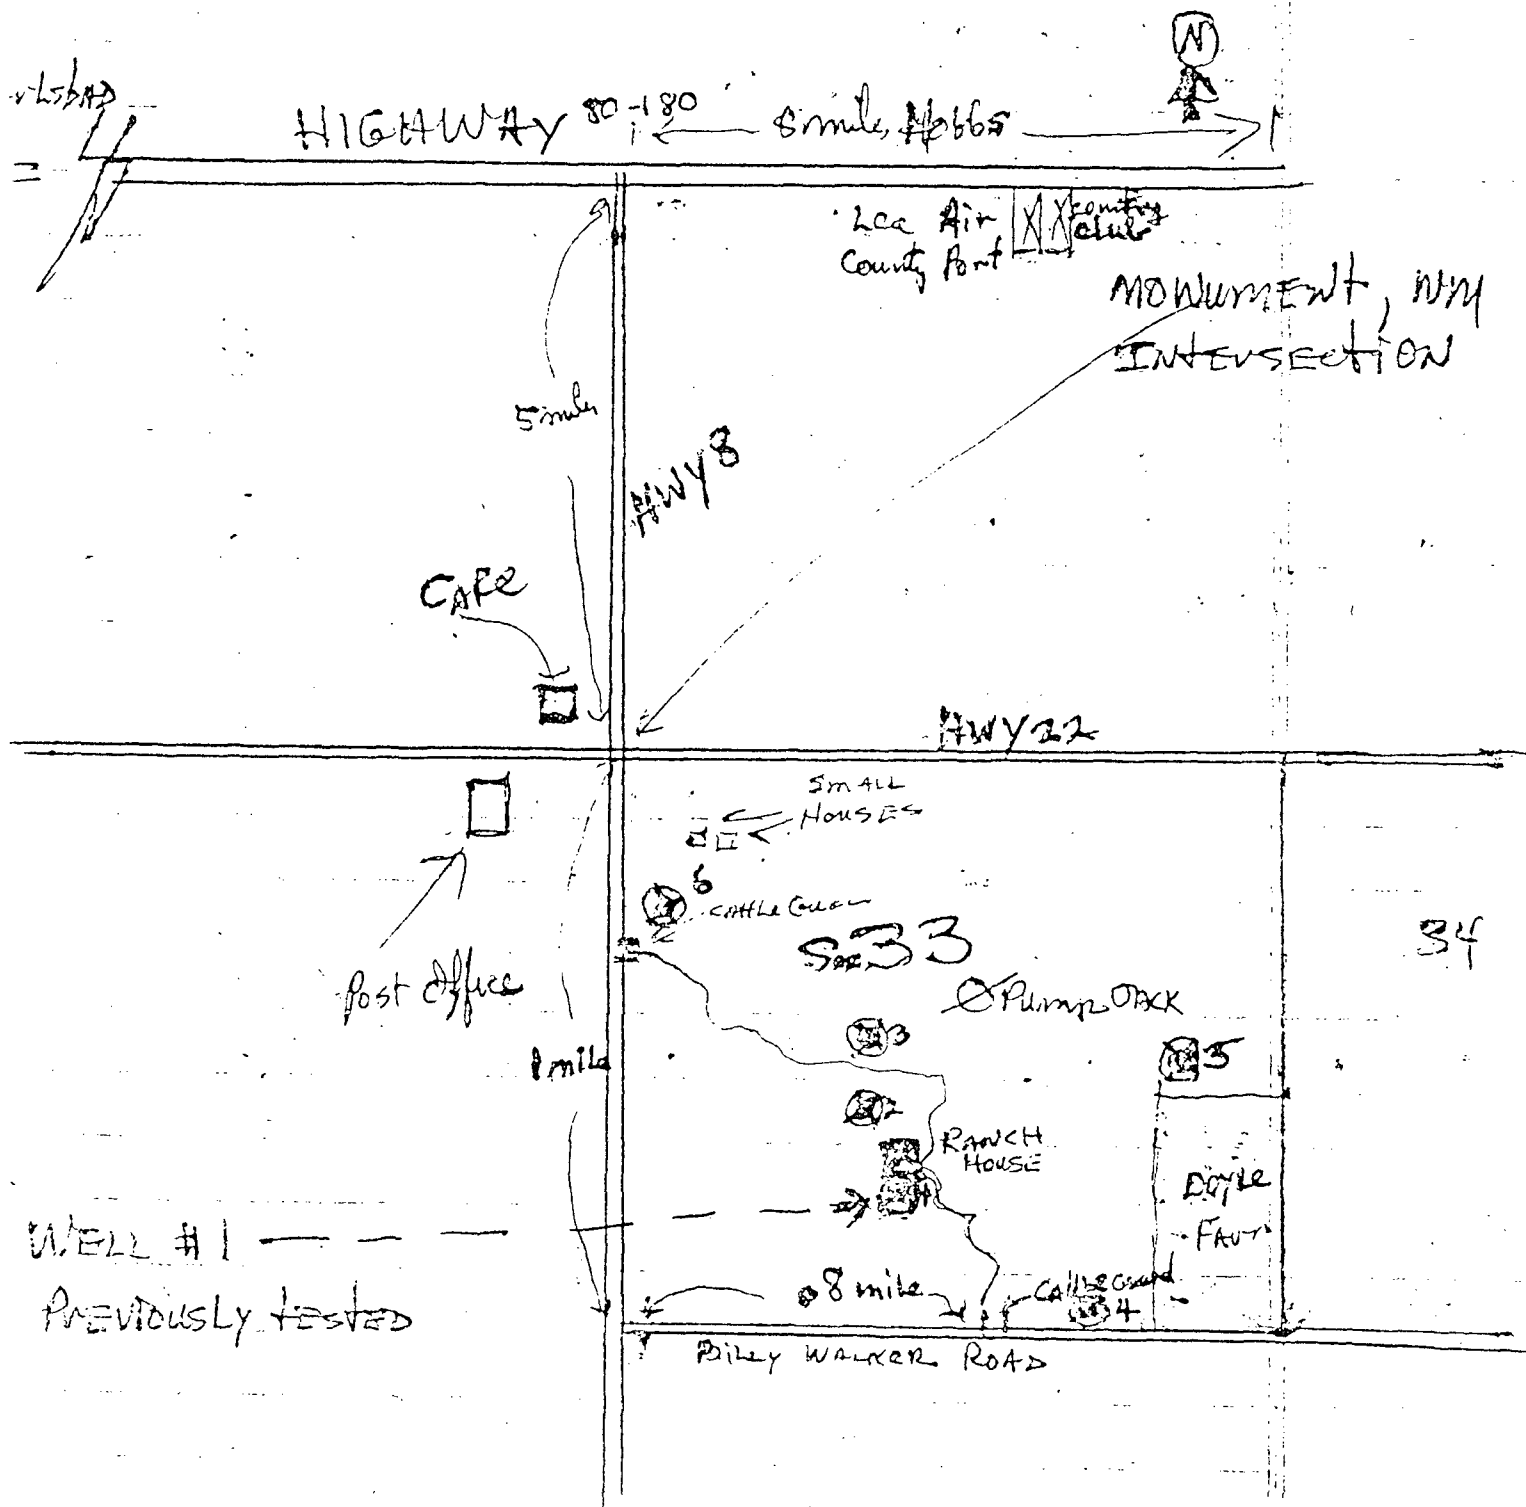 N
HIGHWAY 80-180
8 miles Hobbs
Lea Air
County Port
country
club
MONUMENT, NM
INTERSECTION
5 miles
HWY 8
CAFE
HWY 22
SMALL
HOUSES
6
CATTLE
Sec 33
34
Post Office
Pump JACK
3
5
1 mile
2
RANCH
HOUSE
Doyle
WELL #1
PREVIOUSLY tESTED
.8 mile
Cattle Guard
4
Billy WALKER ROAD